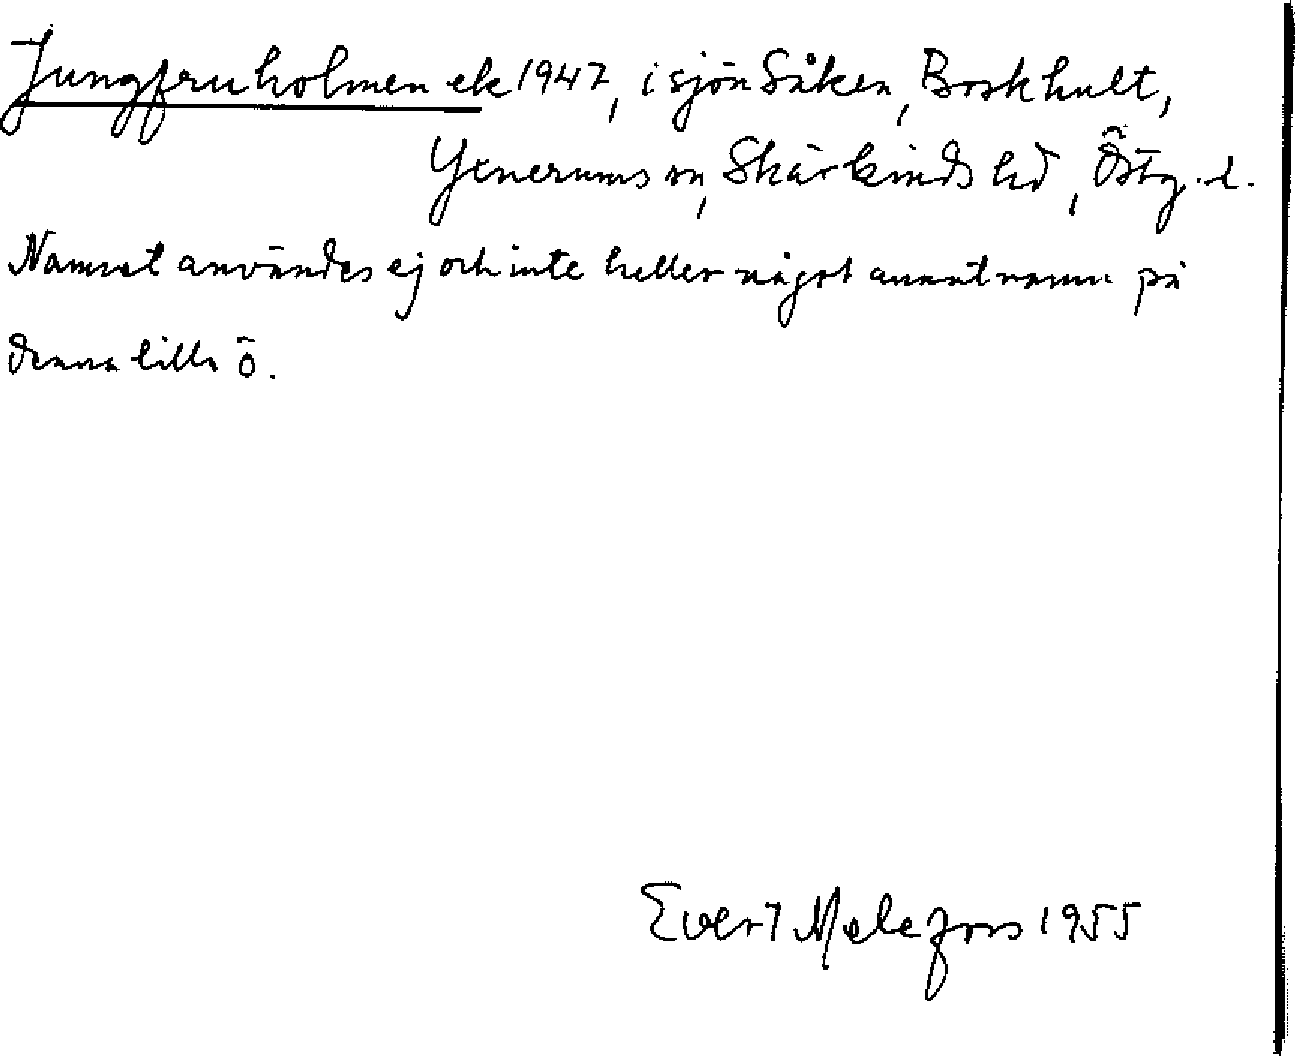 Jungfruholmen ek 1947, i sjön Såken, Boskhult,
Yxnerums sn, Skärkinds hd, Östg. l.
Namnet användes ej och inte heller något annat namn på
denna lilla ö.
Evert Melefors 1955